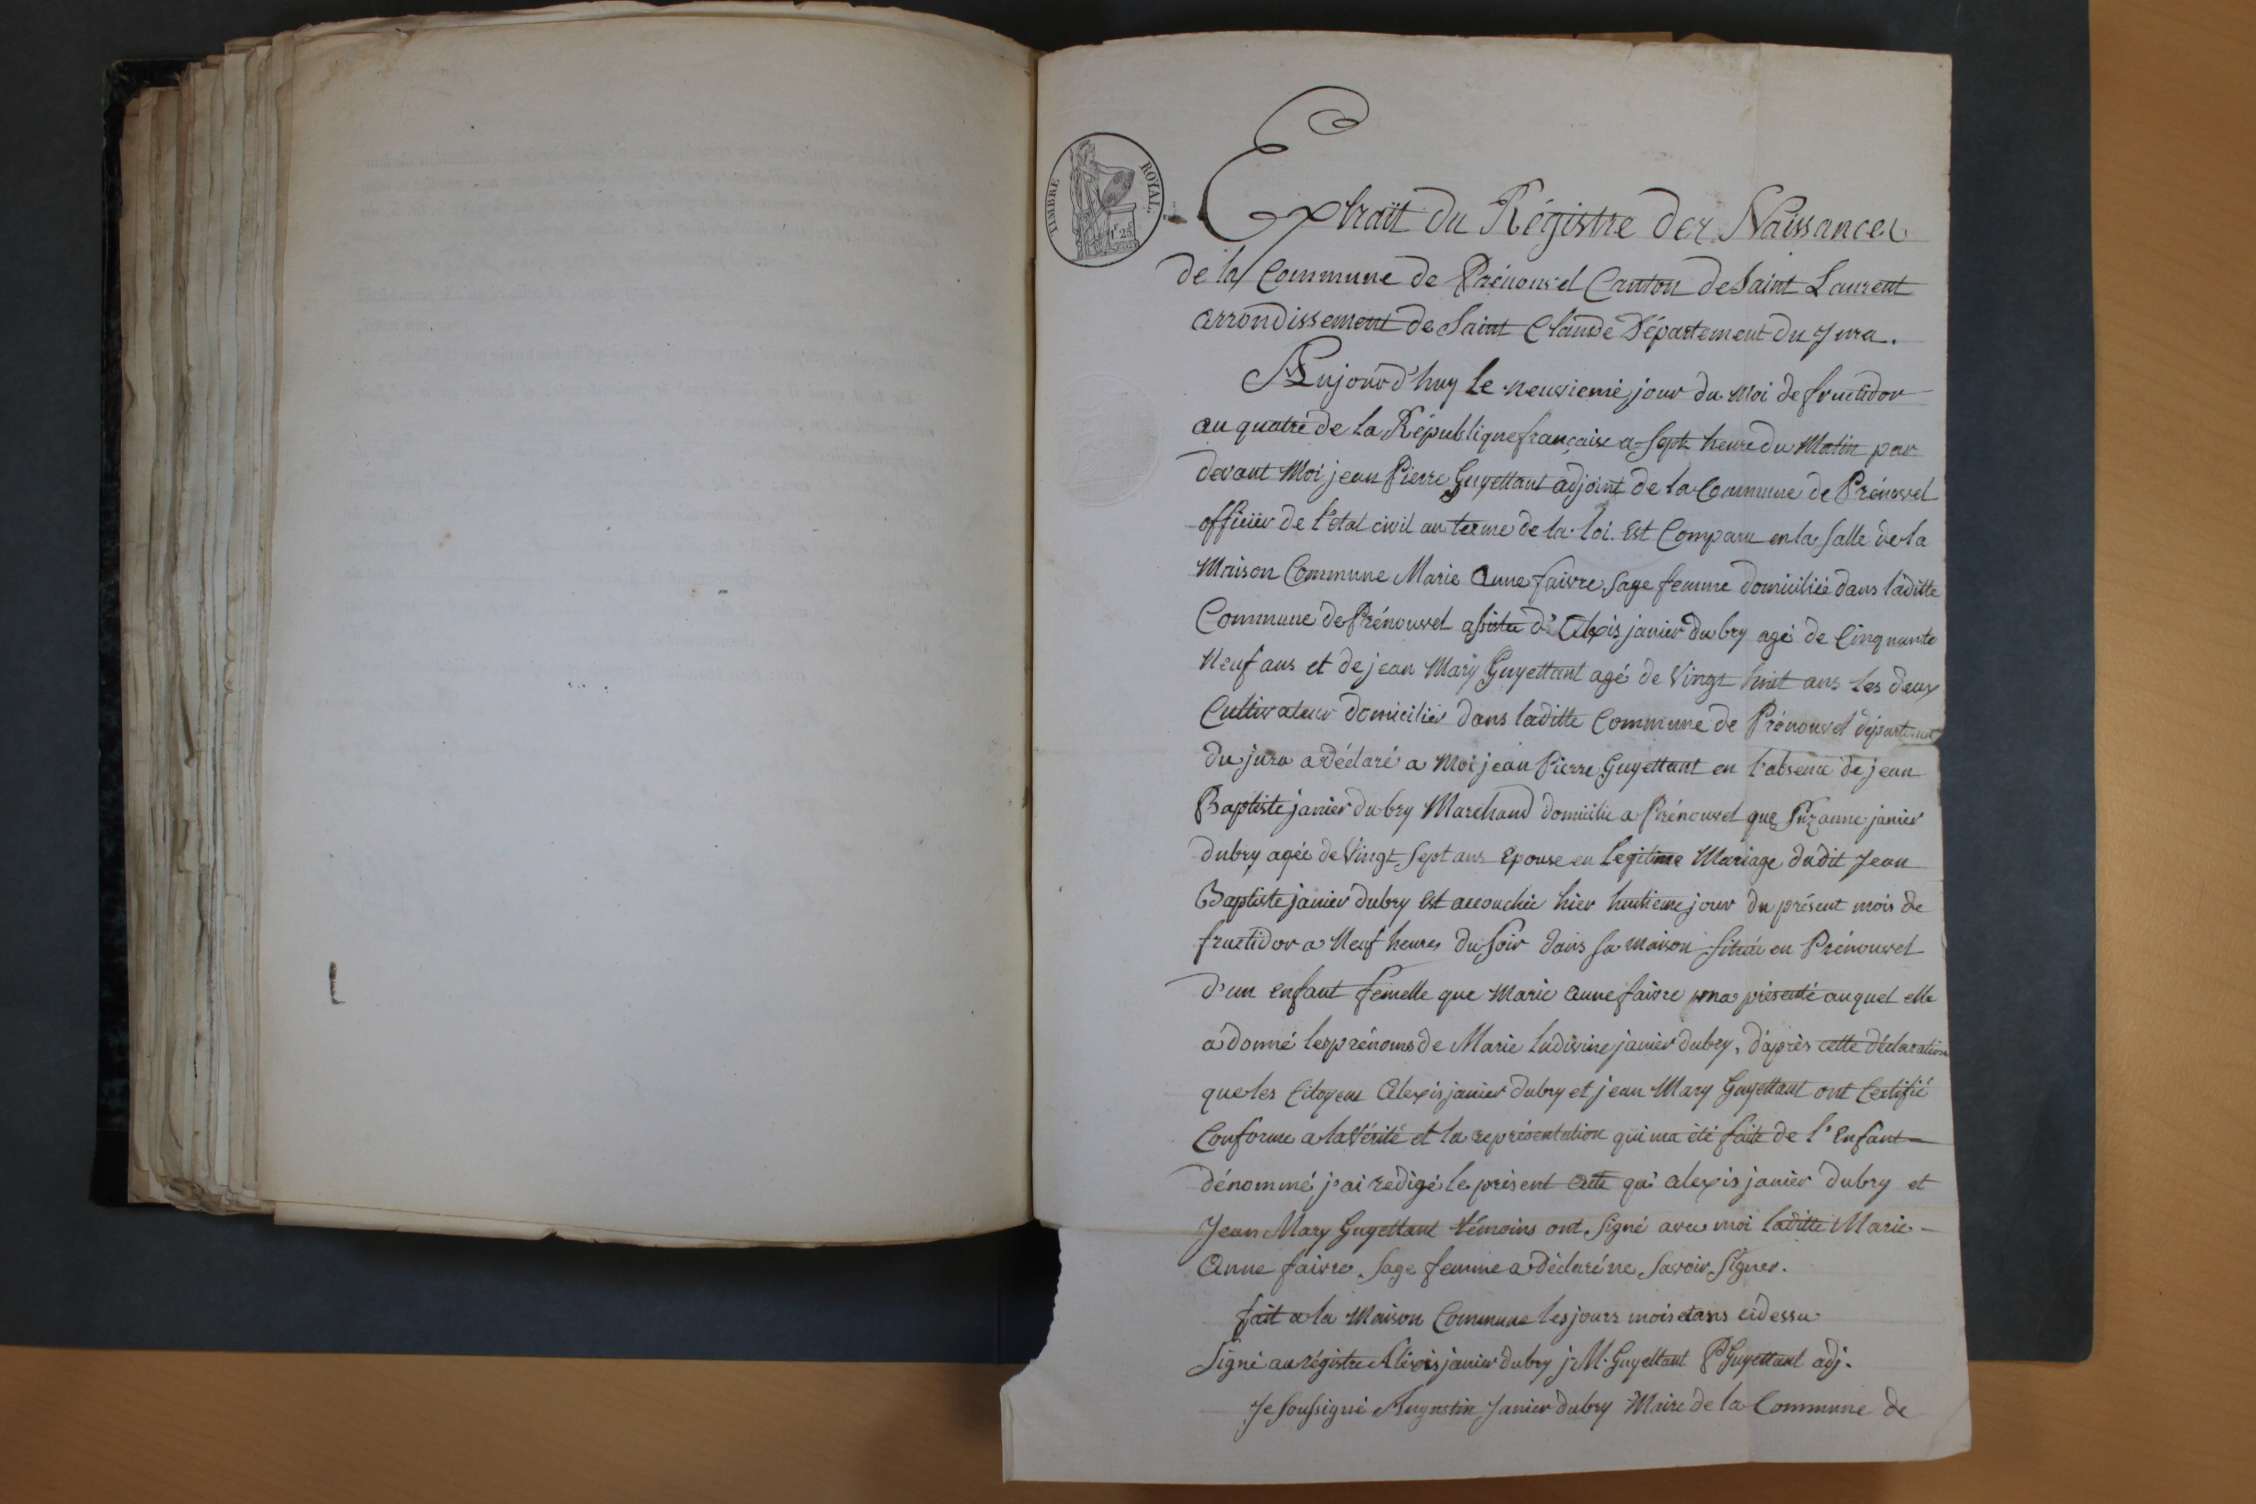 TIMBRE ROYAL.
1f 25
Extrait du Régistre des Naissances
de la Commune de Prénovel Canton de Saint Laurent
arrondissement de Saint Claude Département du Jura.
Aujourd'huy le neuvieme jour du Moi de fructidor
an quatre de la République française a Sept heure du Matin par
devant Moi jean Pierre Guyettant adjoint de la Commune de Prénovel
officier de l'état civil au terme de la loi. Est Comparu en la Salle de la
Maison Commune Marie Anne faivre Sage femme domiciliée dans laditte
Commune de Prénouvel assistée d'Alexis janier dubry agé de Cinquante
Neuf ans et de jean Mary Guyettant agé de Vingt huit ans les deux
Cultivateur domiciliés dans laditte Commune de Prénouvel département
du jura a déclaré a Moi jean Pierre Guyettant en l'absence de jean
Baptiste janier dubry Marchand domicilié a Prénouvel que Suzanne janier
dubry agée de Vingt Sept ans Epouse en legitime Mariage dudit Jean
Baptiste janier dubry Est accouchée hier huitieme jour du présent mois de
fructidor a Neuf heures du Soir dans sa maison située en Prénouvel
d'un enfant femelle que Marie Anne faivre ma présenté auquel elle
a donné les prénoms de Marie ludivine janier dubry, d'après cette déclaration
que les Citoyens Alexis janier dubry et jean Mary Guyettant ont Certifié
Conforme a la Vérité et la représentation qui ma été faite de l'Enfant
dénommé j'ai redigé le présent acte qu'alexis janier dubry et
Jean Mary Guyettant témoins ont signé avec moi laditte Marie
Anne faivre Sage femme a déclaré ne savoir Signer.
fait a la Maison Commune les jours mois et ans cidessu
Signé au régistre Alexis janier dubry j M. Guyettant P Guyettant adj.
Je soussigné Augustin Janier dubry Maire de la Commune de